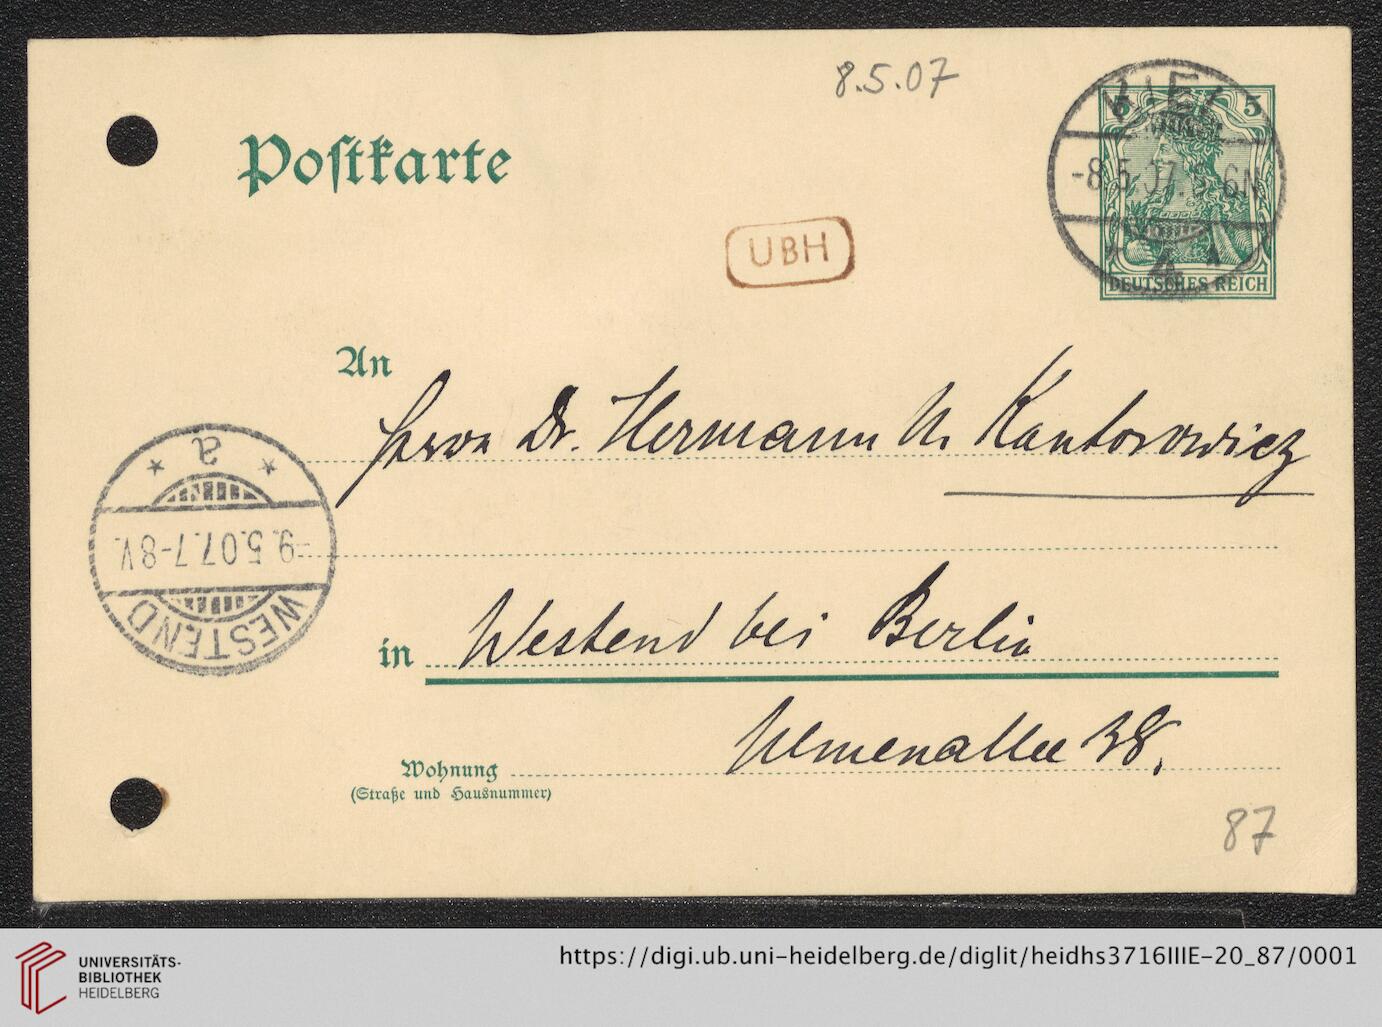 8.5.07
Postkarte
5 5
KIEL
-8.5.07.5-6N
* 4 *
DEUTSCHES REICH
UBH
An
Herrn Dr. Hermann U. Kantorowicz
a
-9.5.07.7-8V.
WESTEND
in Westend bei Berlin
Ulmenallee 38.
Wohnung
(Straße und Hausnummer)
87
UNIVERSITÄTS-
BIBLIOTHEK
HEIDELBERG
https://digi.ub.uni-heidelberg.de/diglit/heidhs3716IIIE-20_87/0001